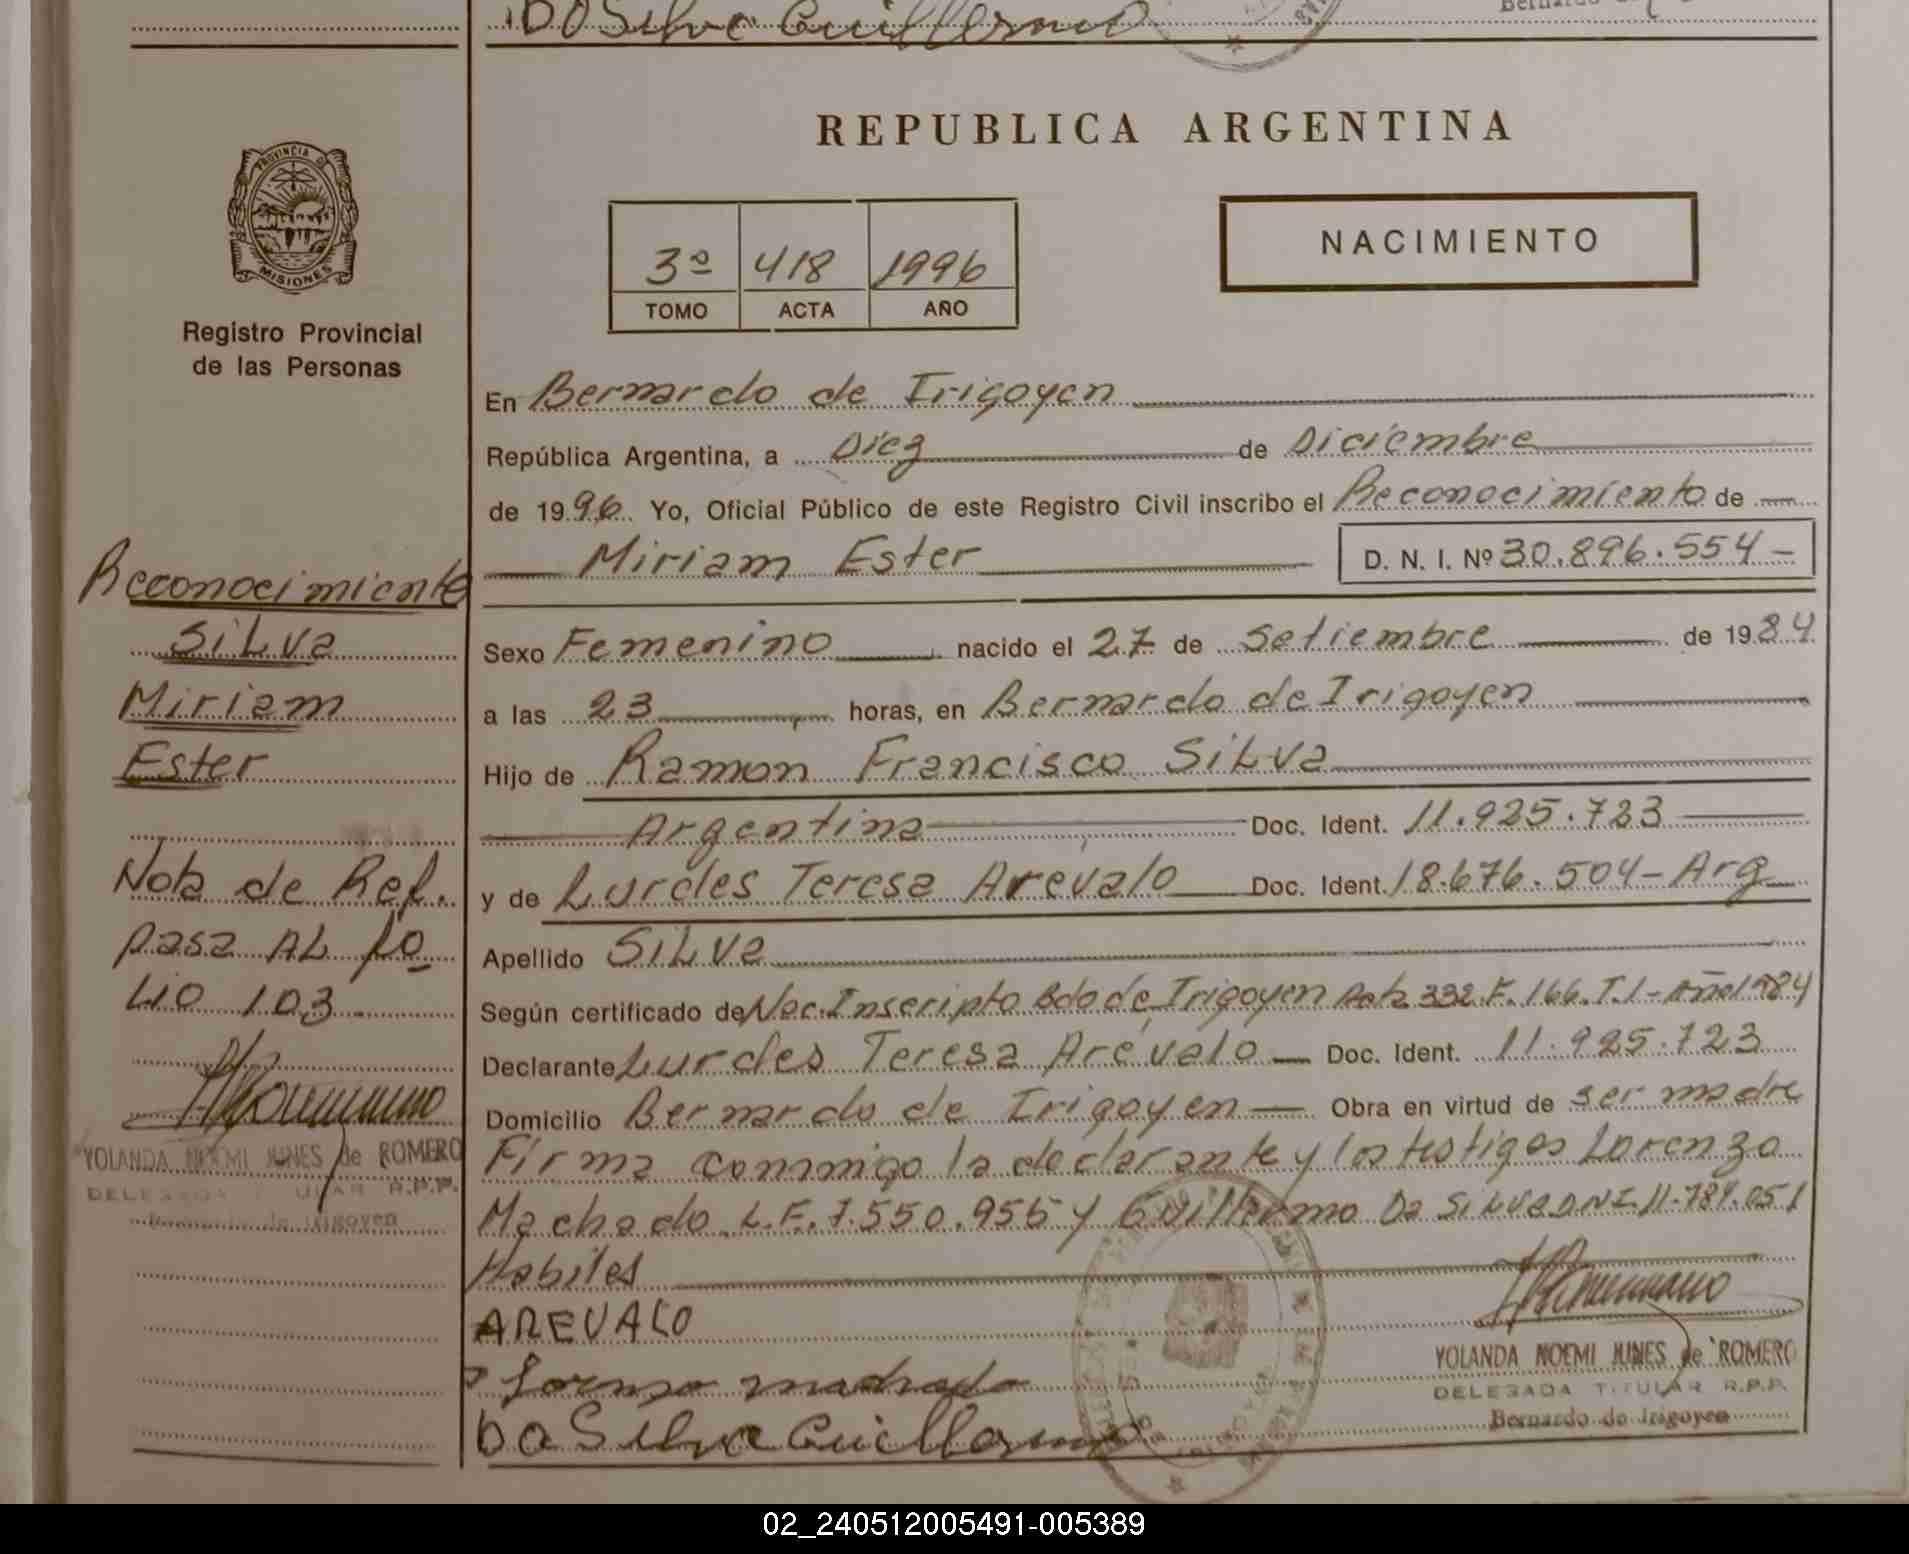 Da Silva Guillermo
REPUBLICA ARGENTINA
PROVINCIA D
MISIONES
Registro Provincial
de las Personas
3º 418 1996
TOMO ACTA AÑO
NACIMIENTO
En Bernardo de Irigoyen
República Argentina, a Diez de Diciembre
de 1996 Yo, Oficial Público de este Registro Civil inscribo el Reconocimiento de
Miriam Ester D. N. I. Nº 30.896.554-
Sexo Femenino nacido el 27 de Setiembre de 1984
a las 23 horas, en Bernardo de Irigoyen
Hijo de Ramon Francisco Silva
Argentina Doc. Ident. 11.925.723
y de Lurdes Teresa Arévalo Doc. Ident. 18.676.504- Arg
Apellido Silva
Según certificado de Nac. Inscripto Bdo de Irigoyen Acta 332 F. 166. T. 1- Año 1984
Declarante Lurdes Teresa Arévalo Doc. Ident. 11.925.723
Domicilio Bernardo de Irigoyen Obra en virtud de ser madre
Firma conmigo la declarante y los testigos Lorenzo
Machado L.E. 7.550.956 y Guillermo Da Silva DNI 11.784.051
Habiles
AREVALO
Lorenso machado
Da Silva Guillermo
YOLANDA NOEMI JUNES de ROMERO
DELEGADA TITULAR R.P.P.
Bernardo de Irigoyen
Reconocimiento
Silva
Miriam
Ester
Nota de Ref.
Pasa AL fo
Lio 103
YOLANDA NOEMI JUNES de ROMERO
DELEGADA TITULAR R.P.P.
Bernardo de Irigoyen
02_240512005491-005389